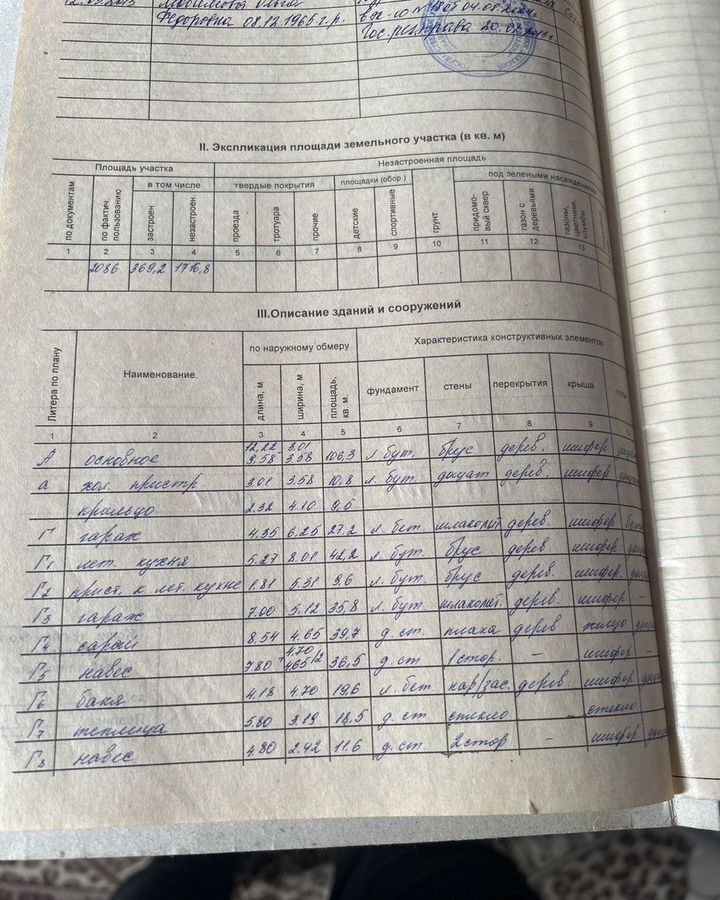 Ольга
Федоровна 08.12.1965 г.р.
Гос. рег. права
II. Экспликация площади земельного участка (в кв. м)
Площадь участка Незастроенная площадь
в том числе твердые покрытия площадки (обор.) под зелеными насаждениями
по документам по фактич. пользованию застроен незастроен проезда тротуара прочие детские спортивные грунт придомовый сквер газон с деревьями газоны, цветники, клумбы
1 2 3 4 5 6 7 8 9 10 11 12 13
2086 369,2 1716,8
III.Описание зданий и сооружений
Литера по плану Наименование по наружному обмеру Характеристика конструктивных элементов
длина, м ширина, м площадь, кв. м. фундамент стены перекрытия крыша полы
1 2 3 4 5 6 7 8 9 10
А основное 12.22 9.01 3.58 3.58 106,3 л. бут. брус дерев. шифер
а хол. пристр 3.01 3.58 10,8 л. бут. дощат дерев. шифер
крыльцо 2.32 4.10 9,5
Г гараж 4.35 6.25 27.2 л. бет. шлаколит. дерев. шифер
Г1 лет. кухня 5.27 8.01 42,2 л. бут. брус дерев. шифер
Г2 прист. к лет. кухне 1.81 5.31 9,6 л. бут. брус дерев. шифер
Г3 гараж 7.00 5.12 35,8 л. бут. шлаколит. дерев. шифер –
Г4 сарай 8.54 4.65 39,7 д. ст. плаха дерев железо
Г5 навес 7.80 4.70 4.65 /2 36,5 д. ст. 1 стор. – шифер –
Г6 баня 4.18 4.70 19,6 л. бет кар/зас. дерев. шифер
Г7 теплица 5.80 3.19 18,5 д. ст стекло – стекло
Г8 навес 4.80 2.42 11.6 д. ст. 2 стор – шифер